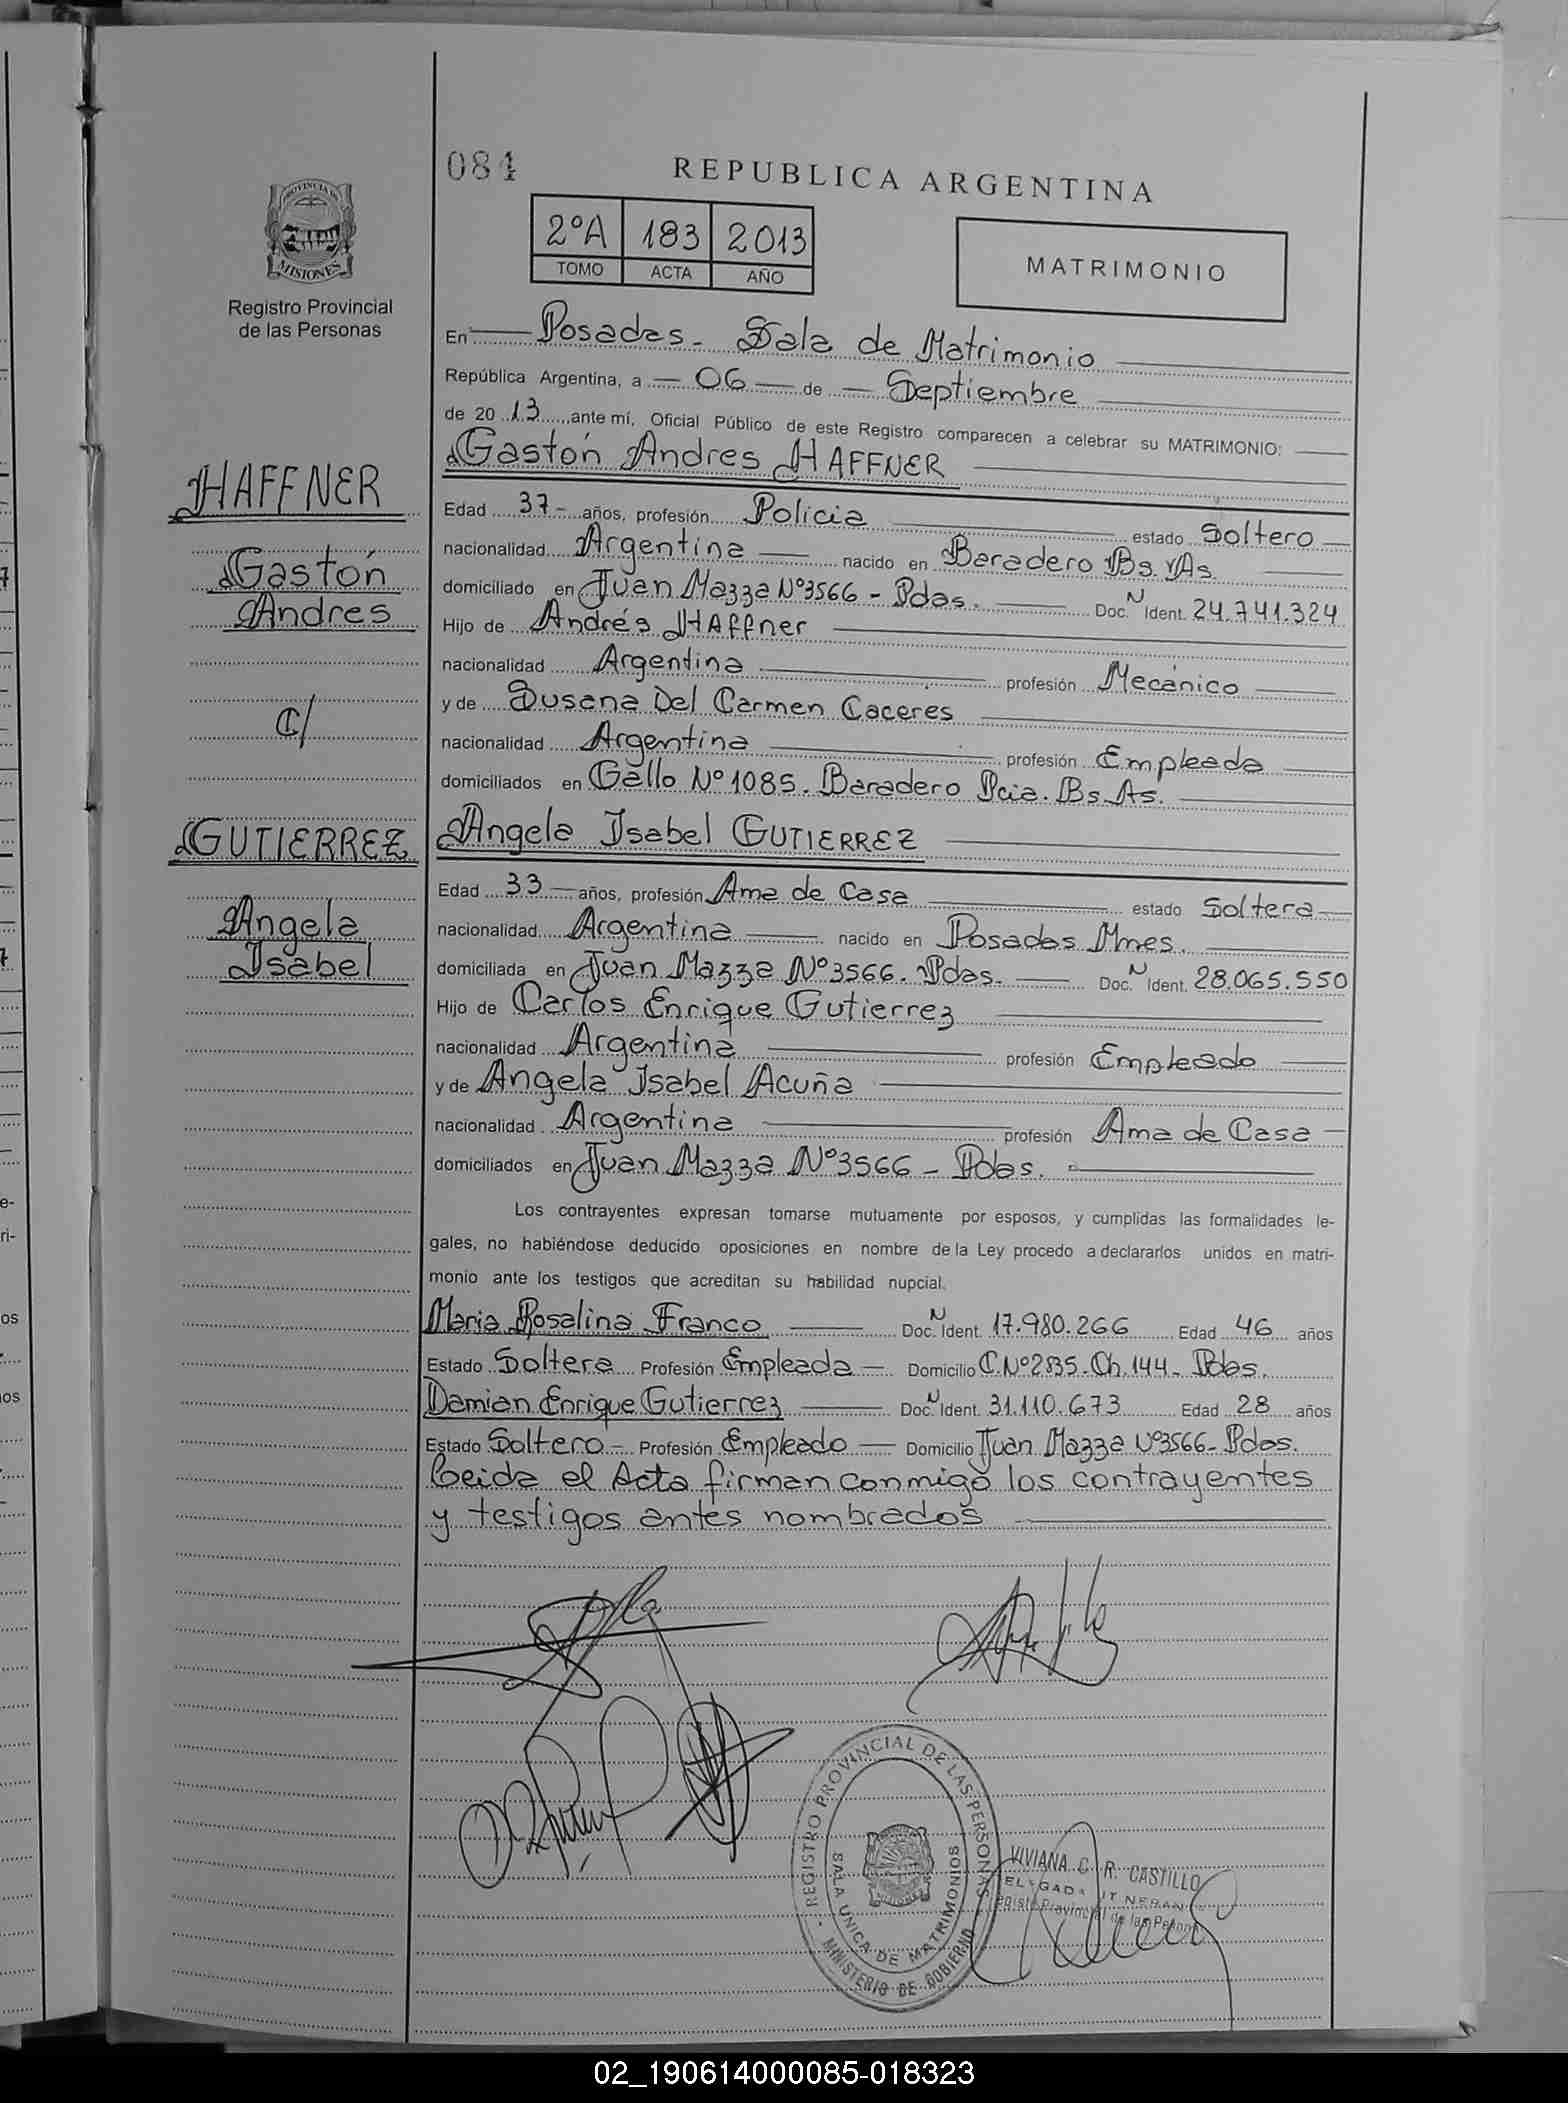 084
REPUBLICA ARGENTINA
PROVINCIA DE
MISIONES
Registro Provincial
de las Personas
2ºA 183 2013
TOMO ACTA AÑO
MATRIMONIO
En Posadas - Sala de Matrimonio
República Argentina, a 06 de Septiembre
de 2013 ante mí, Oficial Público de este Registro comparecen a celebrar su MATRIMONIO:
HAFFNER
Gastón
Andres
C/
GUTIERREZ
Angela
Isabel
Gastón Andres HAFFNER
Edad 37 - años, profesión Policia estado Soltero
nacionalidad Argentina nacido en Baradero Bs. As.
domiciliado en Juan Mazza Nº3566 - Pdas. Doc. N Ident. 24.741.324
Hijo de Andrés HAffner
nacionalidad Argentina profesión Mecánico
y de Susana Del Carmen Caceres
nacionalidad Argentina profesión Empleada
domiciliados en Gallo Nº 1085. Baradero Pcia. Bs. As.
Angela Isabel GUTIERREZ
Edad 33 años, profesión Ama de Casa estado Soltera
nacionalidad Argentina nacido en Posadas Mnes.
domiciliada en Juan Mazza Nº3566. Pdas. Doc. N Ident. 28.065.550
Hijo de Carlos Enrique Gutierrez
nacionalidad Argentina profesión Empleado
y de Angela Isabel Acuña
nacionalidad Argentina profesión Ama de Casa
domiciliados en Juan Mazza Nº3566 - Pdas.
Los contrayentes expresan tomarse mutuamente por esposos, y cumplidas las formalidades le-
gales, no habiéndose deducido oposiciones en nombre de la Ley procedo a declararlos unidos en matri-
monio ante los testigos que acreditan su habilidad nupcial.
Maria Rosalina Franco Doc. N Ident. 17.980.266 Edad 46 años
Estado Soltera Profesión Empleada Domicilio C.Nº2535. Ch. 144 - Pdas.
Damian Enrique Gutierrez Doc. N Ident. 31.110.673 Edad 28 años
Estado Soltero - Profesión Empleado Domicilio Juan Mazza Nº3566 - Pdas.
Leida el Acta firman conmigo los contrayentes
y testigos antes nombrados
REGISTRO PROVINCIAL DE LAS PERSONAS
SALA UNICA DE MATRIMONIOS
MINISTERIO DE GOBIERNO
VIVIANA C. R. CASTILLO
Registro Provincial de las Personas
02_190614000085-018323